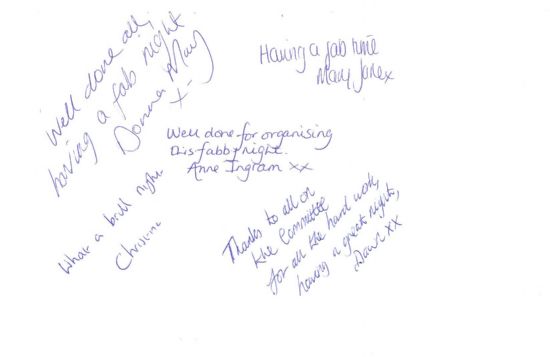 Well done all,
having a fab night
Donna Mary
x
Having a fab time
Mary Jane x
Well done for organising
this fabby night.
Anne Ingram xx
What a brill night
Christine
Thanks to all on
the Committee
for all the hard work,
having a great night,
Dawn xx